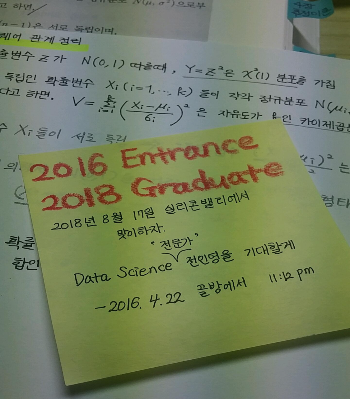 하고 하면/
-1)은 서로 독립이며.
제어 관계 정리
확률변수 Z가 N(0,1) 따를때, Y=Z²은 X²(1) 분포를 가짐
독립인 확률변수 Xi(i=1,..., k) 들이 각각 정규분포 N(μi,
다고 하면. V = Σ (Xi-μi / 6i)² 은 자유도가 k인 카이제곱
수 Xi들이 서로 독리
2016 Entrance
2018 Graduate
2018년 8월 17일 실리콘밸리에서
맞이하자.
"전문가"
Data Science 전인영을 기대할게
-2016. 4.22 끝방에서 11:12 pm
확률
함인